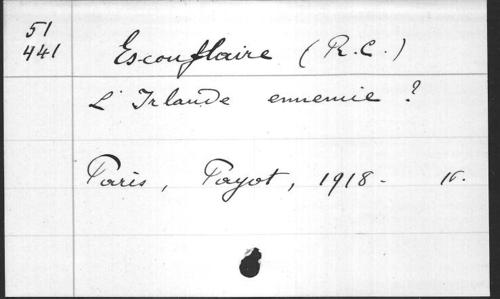 51
441
Escouflaire (R.C.)
L'Irlande ennemie ?
Paris, Payot, 1918-